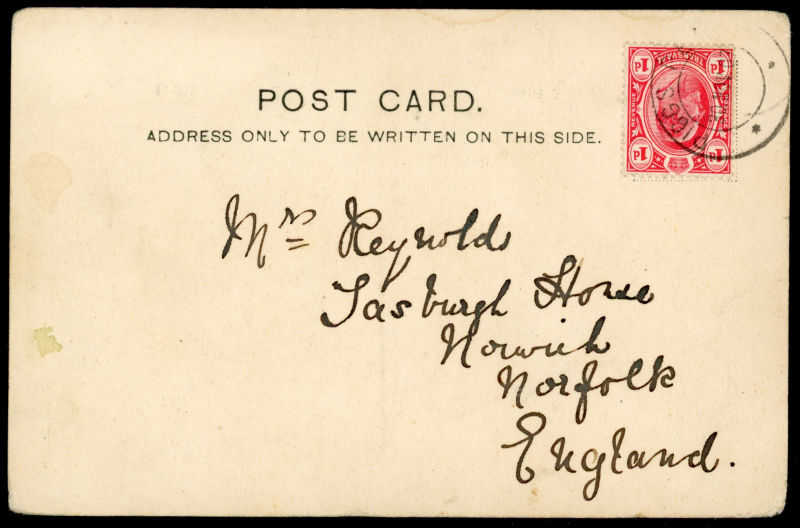 POST CARD.
ADDRESS ONLY TO BE WRITTEN ON THIS SIDE.
TRANSVAAL
REVENUE
POSTAGE
1d 1d
1d 1d
Mrs Reynolds
Tasburgh House
Norwich
Norfolk
England.